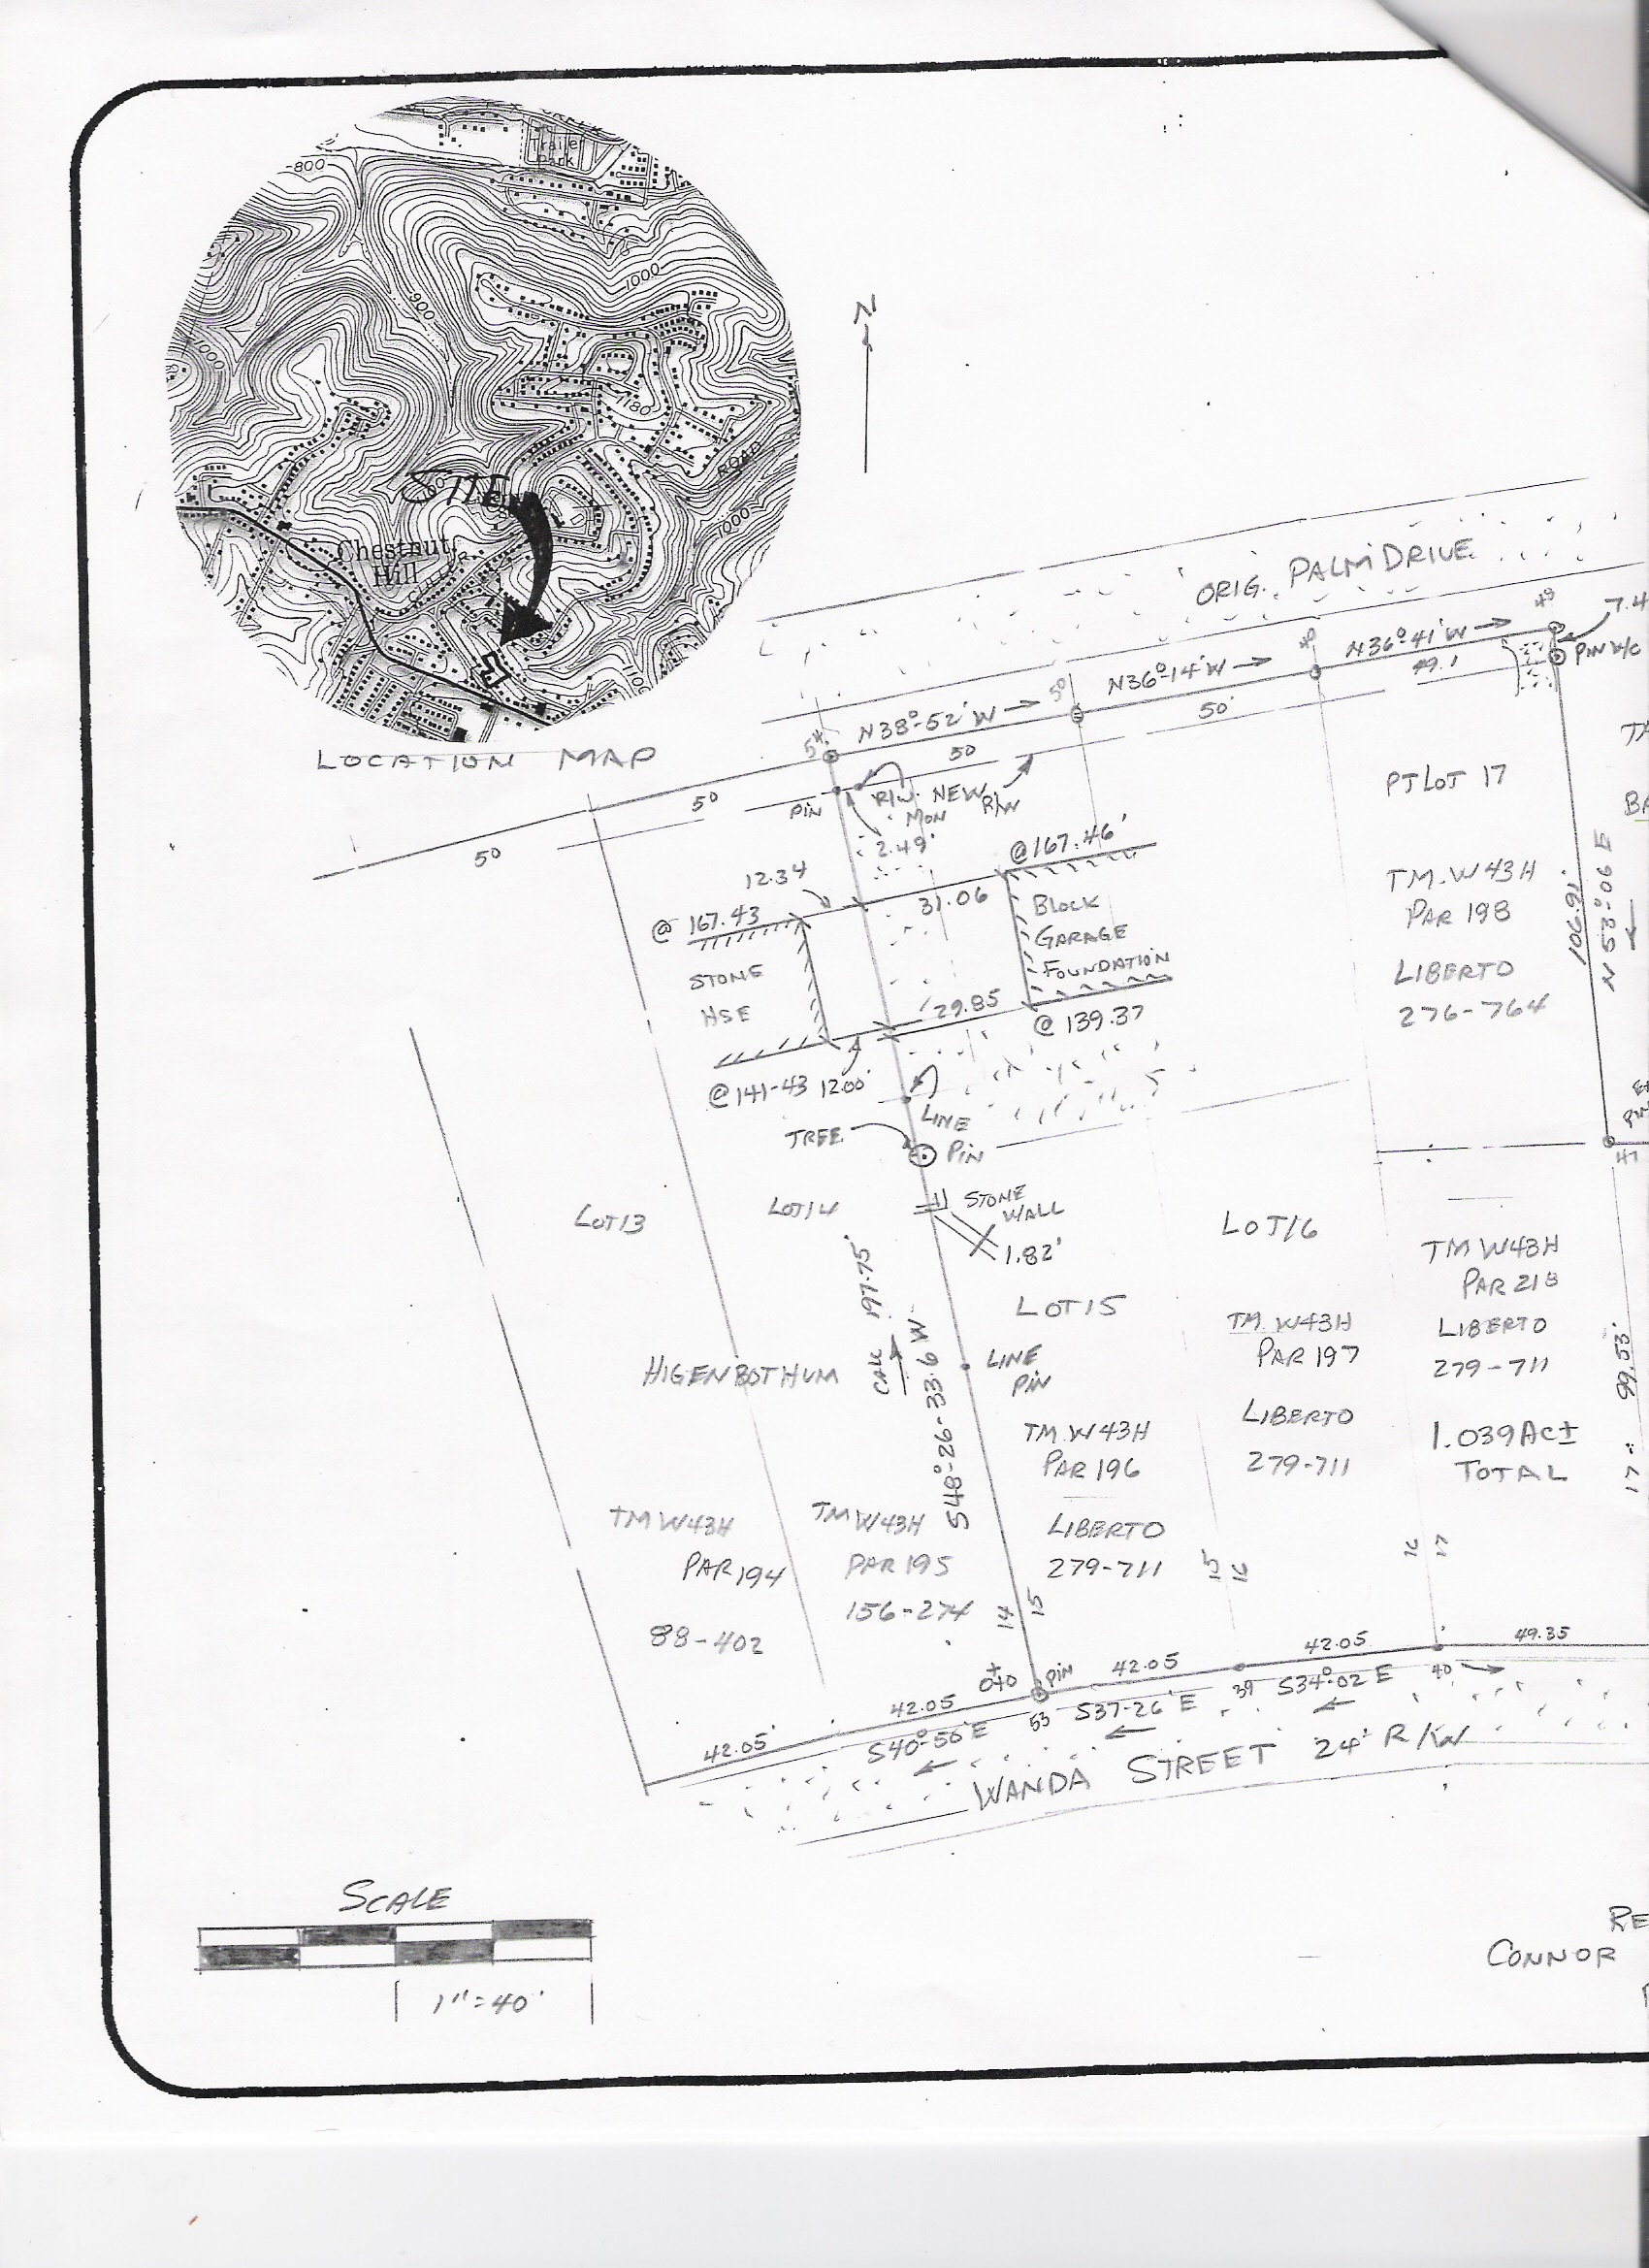 Trailer
Park
800
1000
900
1000
1180
ROAD
1000
SITE
Chestnut
Hill
LOCATION MAP
N
ORIG. PALM DRIVE
49
7.4
N36°-41'W
49.1
PIN W/C
48
N36°-14'W
50'
50
N38°-52'W
50
54
50
50
PIN
R/W
MON
NEW
R/W
2.49'
@167.46'
12.34
31.06
@ 167.43
BLOCK
GARAGE
FOUNDATION
STONE
HSE
29.85
@ 139.37
@141-43 12.00'
LINE
PIN
TREE
STONE
WALL
1.82'
PT LOT 17
TM.W43H
PAR 198
LIBERTO
276-764
106.91'
N53°-06 E
47
LOT13
LOT14
LOT15
LOT16
TM W43H
PAR 218
LIBERTO
279-711
1.039Ac±
TOTAL
99.53'
HIGENBOTHUM
197.75'
S48°-26-33.6 W
LINE
PIN
TM.W43H
PAR 197
LIBERTO
279-711
TM.W43H
PAR 196
LIBERTO
279-711
TM W43H
PAR 194
88-402
TM W43H
PAR 195
156-274
14
15
15
16
16
17
42.05'
42.05
PIN
42.05
42.05
49.35
S40°-56'E
53
S37-26'E
39
S34°-02 E
40
WANDA STREET 24' R/W
SCALE
1"=40'
CONNOR